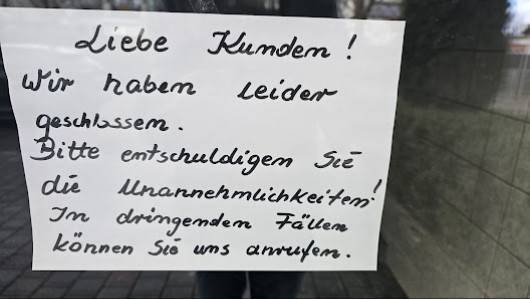 Liebe Kunden!
Wir haben leider
geschlossen.
Bitte entschuldigen Sie
die Unannehmlichkeiten!
In dringenden Fällen
können Sie uns anrufen.